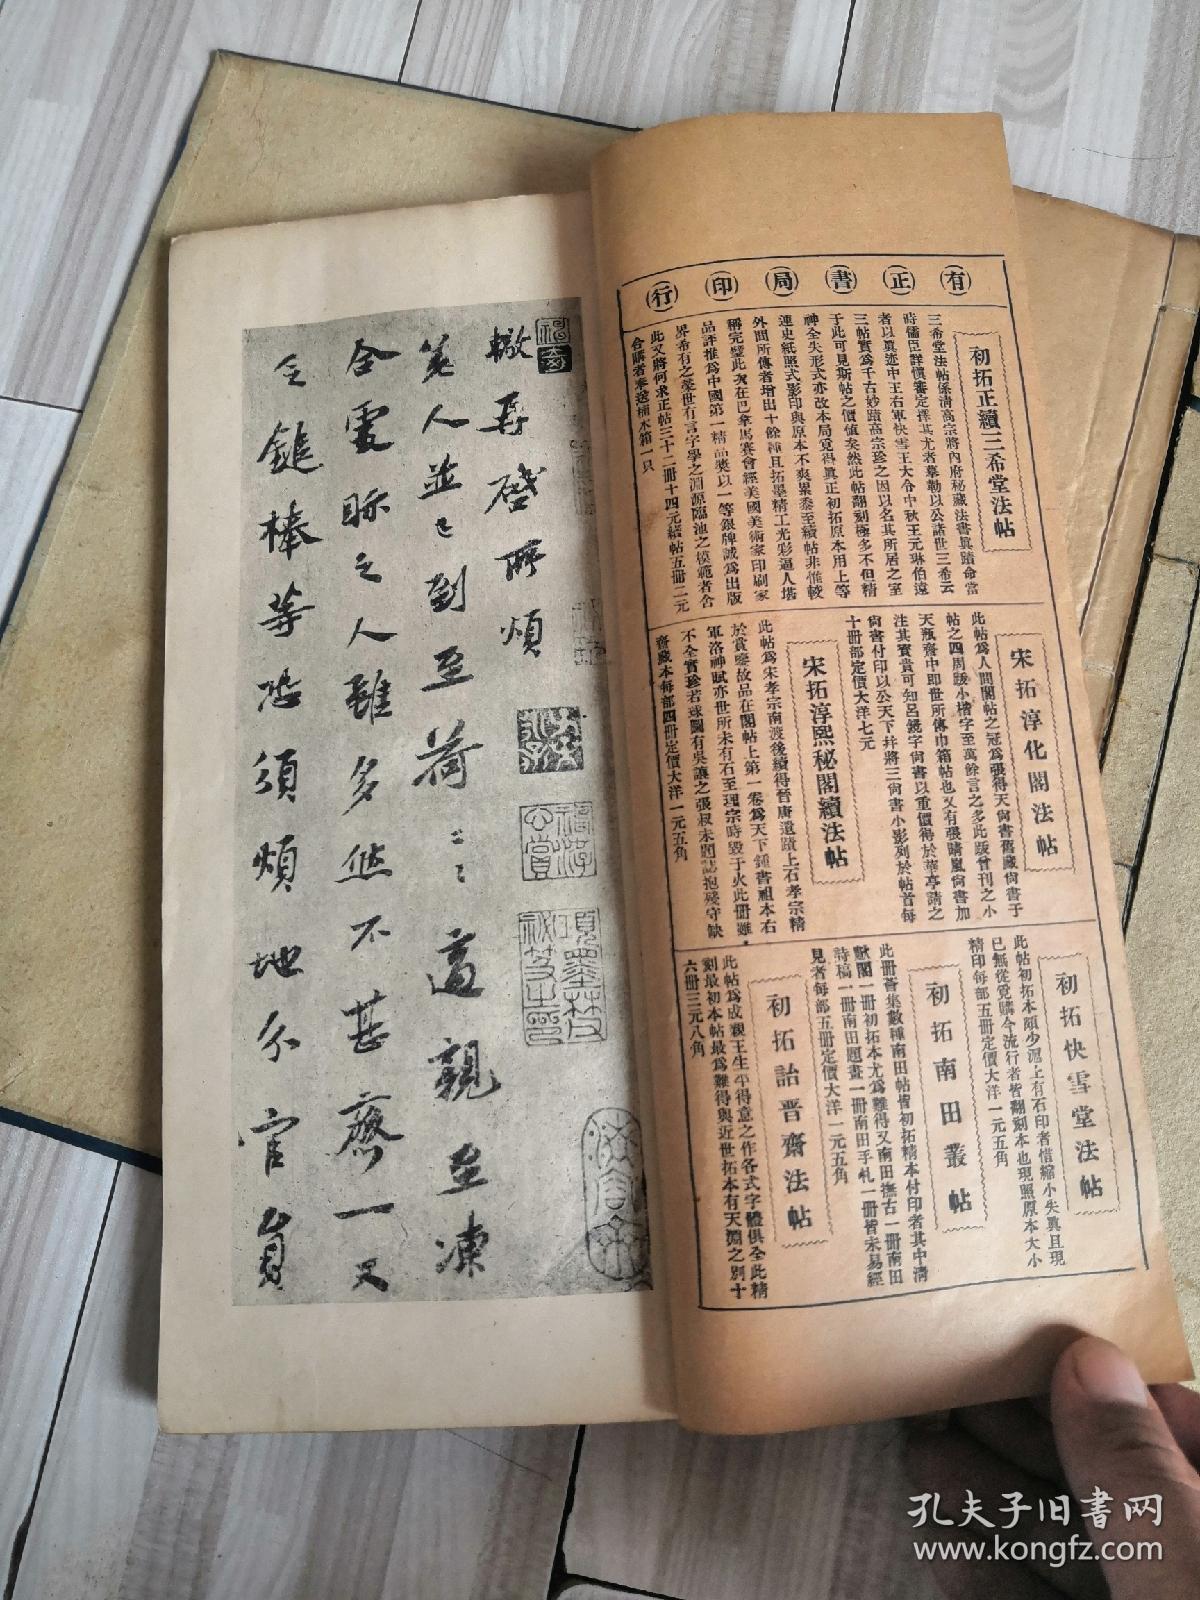 有正書局印行
初拓正續三希堂法帖
三希堂法帖係清高宗將內府秘藏法書眞蹟命當
時儒臣詳慎審定擇其尤者摹勒以公諸世三希云
者以眞迹中王右軍快雪王大令中秋王元琳伯遠
三帖實爲千古妙蹟高宗珍之因以名其所居之室
于此可見斯帖之價值矣然此帖翻刻極多不但精
神全失形式亦改本局覓得眞正初拓原本用上等
連史紙照式影印與原本不爽累黍至續帖非惟較
外間所傳者增出十餘種且拓墨精工光彩逼人堪
稱完璧此次在巴拿馬賽會經美國美術家印刷家
品評推爲中國第一精品奬以一等銀牌誠爲出版
界希有之榮世有言字學之淵源臨池之模範者舍
此又將何求正帖三十二冊十四元續帖五冊二元
合購者奉送楠木箱一只
宋拓淳化閣法帖
此帖爲人間閣帖之冠爲張得天尙書舊藏尙書于
帖之四周跋小楷字至萬餘言之多此跋曾刊之小
天瓶齋中即世所傳巾箱帖也又有張晴嵐尙書加
注其寶貴可知呂鏡宇尙書以重價得於華亭請之
尙書付印以公天下幷將三尙書小影列於帖首每
十冊部定價大洋七元
宋拓淳熙秘閣續法帖
此帖爲宋孝宗南渡後續得晉唐遺蹟上石孝宗精
於賞鑒故品在閣帖上第一卷爲天下鍾書祖本右
軍洛神賦亦世所未有石至理宗時毀于火此冊雖
不全實珍若球圖有吳讓之張叔未題誌抱殘守缺
齋藏本每部四冊定價大洋一元五角
初拓快雪堂法帖
此帖初拓本頗少滬上有石印者惜縮小失眞且現
已無從覓購今流行者皆翻刻本也現照原本大小
精印每部五冊定價大洋一元五角
初拓南田叢帖
此冊薈集數種南田帖皆初拓精本付印者其中淸
一冊初拓本尤爲難得又南田撫古一冊南田
詩稿一冊南田題畫一冊南田手札一冊皆未易經
見者每部五冊定價大洋一元五角
初拓詒晉齋法帖
此帖爲成親王生平得意之作各式字體俱全此精
刻最初本帖最爲難得與近世拓本有天淵之別十
六冊三元八角
轍再啓所煩
美人並已到至荷
遠親至凍
合要眎之人雖多然不甚齋一又
鎚棒等恐須煩地分官員
項墨林
孔夫子旧书网
www.kongfz.com